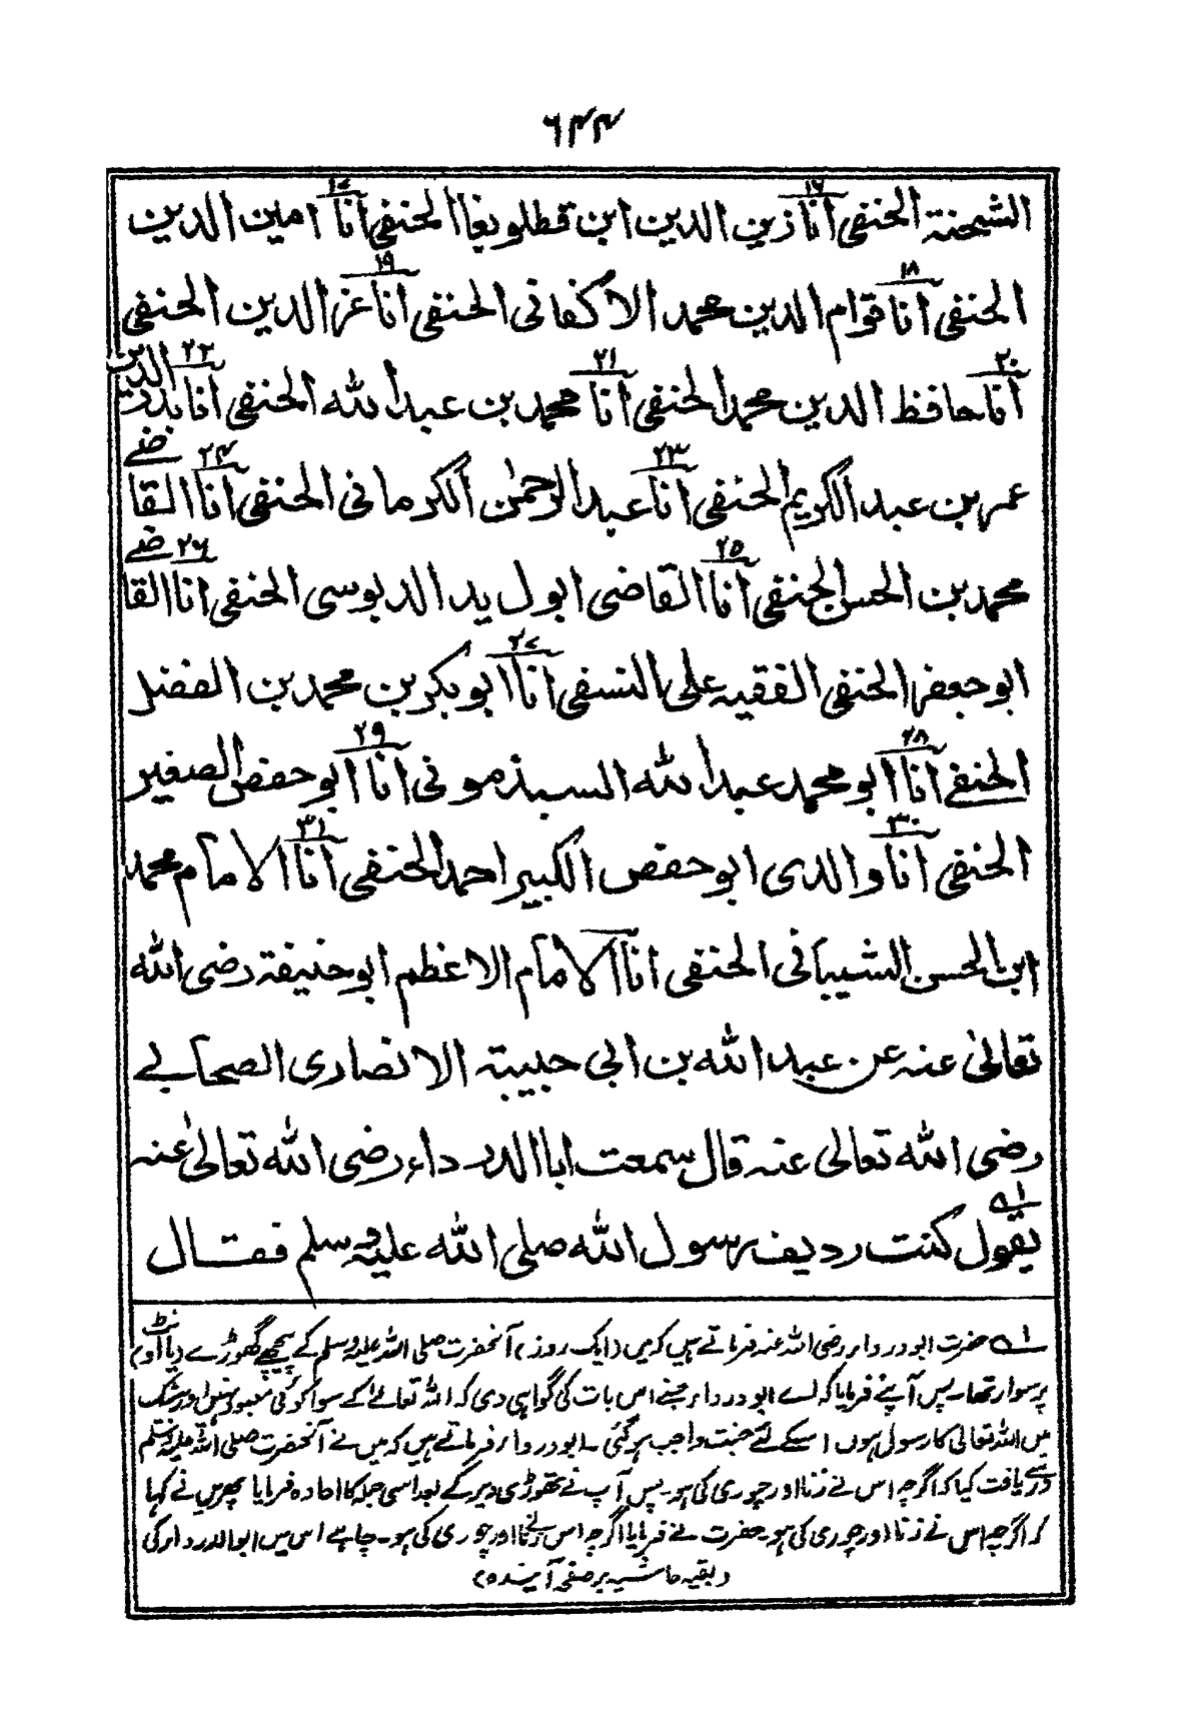 ۶۴۴
الشحنۃ الحنفی انا ۱۶ زین الدین ابن قطلوبغا الحنفی انا ۱۷ امین الدین
الحنفی انا ۱۸ قوام الدین محمد الاکفانی الحنفی انا ۱۹ عز الدین الحنفی
انا ۲۰ حافظ الدین محمد الحنفی انا ۲۱ محمد بن عبد اللہ الحنفی انا ۲۲ بدر الدین
عمر بن عبد الکریم الحنفی انا ۲۳ عبد الرحمٰن الکرمانی الحنفی انا ۲۴ القاضے
محمد بن الحسن الحنفی انا ۲۵ القاضی ابول ید الدبوسی الحنفی انا ۲۶ القاضے
ابو جعفر الحنفی الفقیہ علی النسفی انا ۲۷ ابو بکر بن محمد بن الفضل
الحنفے انا ۲۸ ابو محمد عبد اللہ السبذمونی انا ۲۹ ابو حفص الصغیر
الحنفی انا ۳۰ والدی ابو حفص الکبیر احمد الحنفی انا ۳۱ الامام محمد
ابن الحسن الشیبانی الحنفی انا الامام الاعظم ابو حنیفۃ رضی اللہ
تعالیٰ عنہ عن عبد اللہ بن ابی حبیبۃ الانصاری الصحابے
رضی اللہ تعالی عنہ قال سمعت ابا الدرداء رضی اللہ تعالیٰ عنہ
یقول ۱ کنت ردیف رسول اللہ صلی اللہ علیہ وسلم فقال
۱ حضرت ابو دردار رضی اللہ عنہ فرماتے ہیں کہ میں (ایک روز) آنحضرت صلی اللہ علیہ وسلم کے پیچھے گھوڑے (یا اونٹ)
پر سوار تھا۔ پس آپنے فرمایا کہ اے ابو درداء جسنے اس بات کی گواہی دی کہ اللہ تعالےٰ کے سوا کوئی معبود نہیں اور بیشک
میں اللہ تعالی کا رسول ہوں اسکے لئے جنت واجب ہو گئی۔ ابو درداء فرماتے ہیں کہ میں نے آنحضرت صلی اللہ علیہ وسلم
سے دریافت کیا کہ اگرچہ اس نے زنا اور چوری کی ہو۔ پس آپ نے تھوڑی دیر کے بعد اسی جملہ کا اعادہ فرمایا پھر میں نے کہا
کہ اگرچہ اس نے زنا اور چوری کی ہو۔ حضرت نے فرمایا اگرچہ اس نے زنا اور چوری کی ہو۔ چاہے اس میں ابوالدردار کی
(بقیہ حاشیہ بر صفحہ آیندہ)